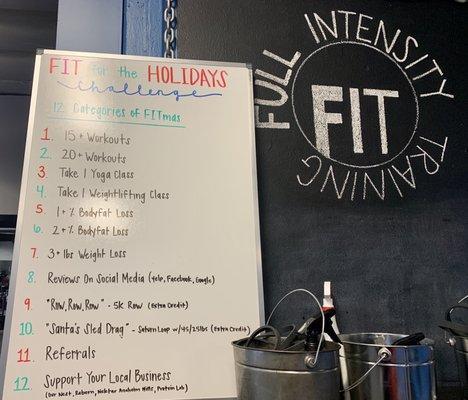 FIT for the HOLIDAYS
challenge
12 Categories of FITmas
1. 15+ Workouts
2. 20+ Workouts
3. Take 1 Yoga Class
4. Take 1 Weightlifting Class
5. 1+% Bodyfat Loss
6. 2+% Bodyfat Loss
7. 3+ lbs Weight Loss
8. Reviews On Social Media (Yelp, Facebook, Google)
9. "Row, Row, Row" - 5K Row (Extra Credit)
10. "Santa's Sled Drag" - Saturn Loop w/45/25lbs (Extra Credit)
11. Referrals
12. Support Your Local Business
(Our Nest, Reborn, Nekter Anaheim Hills, Protein Lab)
FULL INTENSITY
FIT
TRAINING